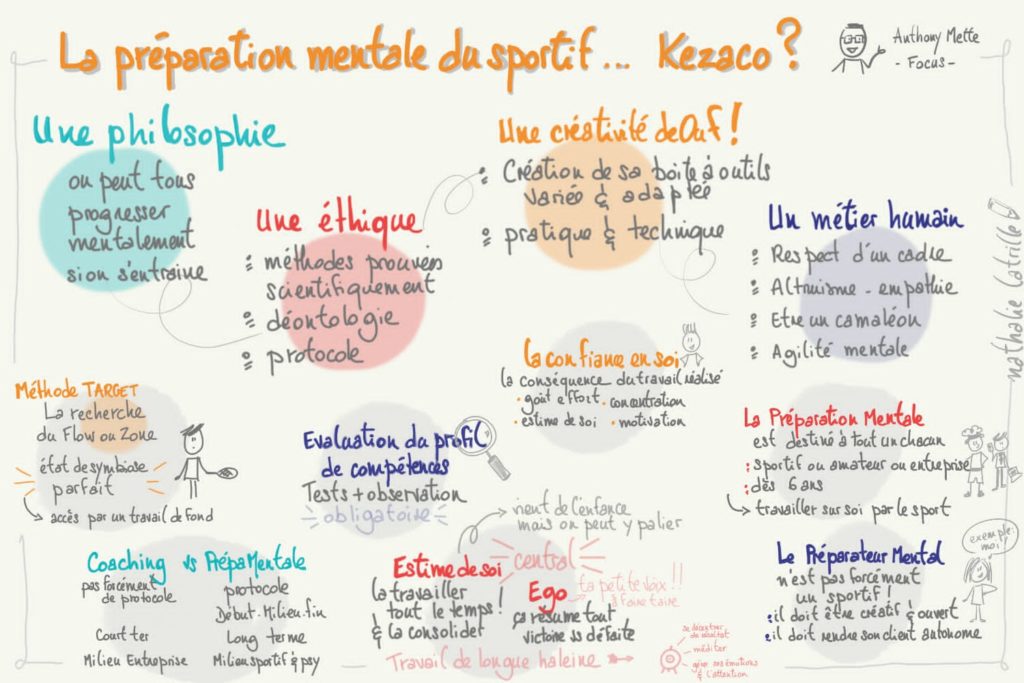 La préparation mentale du sportif... Kezaco?
Anthony Mette
- Focus -
Une philosophie
ou peut tous
progresser
mentalement
si on s'entraine
Une éthique
: méthodes prouvées
scientifiquement
: déontologie
: protocole
Une créativité de Ouf!
: Création de sa boîte à outils
variée & adaptée
: pratique & technique
Un métier humain
: Respect d'un cadre
: Altruisme - empathie
: Etre un camaléon
: Agilité mentale
nathalie Latrille
Méthode TARGET
La recherche
du Flow ou Zone
état de symbiose
parfait
accès par un travail de fond
Evaluation du profil
de compétences
Tests + observation
obligatoire
la confiance en soi
la conséquence du travail réalisé
• goût effort • concentration
• estime de soi • motivation
La Préparation Mentale
est destiné à tout un chacun
: sportif ou amateur ou entreprise
: dès 6 ans
travailler sur soi par le sport
Coaching vs PrépaMentale
pas forcément
de protocole
protocole
Début-Milieu-fin
Court ter
Long terme
Milieu Entreprise
Milieu sportif & psy
vient de l'enfance
mais on peut y palier
Estime de soi
la travailler
tout le temps!
& la consolider
central
Ego
ta petite voix!!
à faire taire
ça résume tout
victoire ss défaite
Travail de longue haleine
se décentrer
du résultat
méditer
gérer ses émotions
& l'attention
Le Préparateur Mental
n'est pas forcément
un sportif!
: il doit être créatif & ouvert
: il doit rendre son client autonome
exemple:
moi!